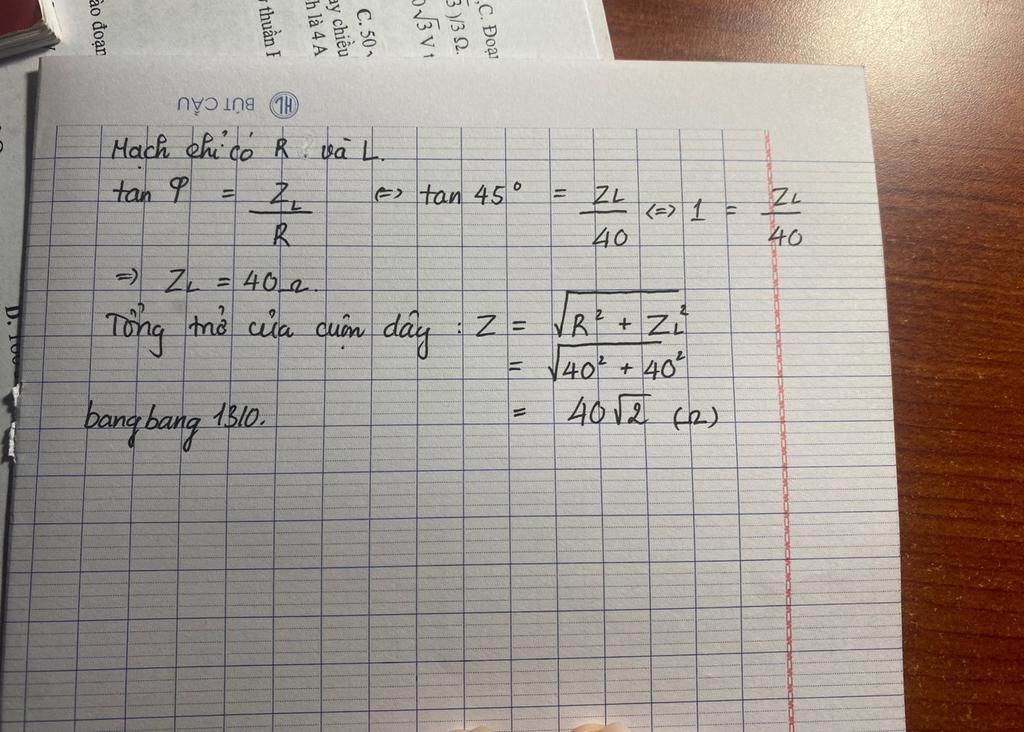 ào đoạn
thuần
C. 50
ay chiều
h là 4 A
0√3 V
3)/3 Ω.
,C. Đoạ
HL BÚT CẦU
Mạch chỉ có R và L.
tan φ = Z_L/R <=> tan 45° = ZL/40 <=> 1 = ZL/40
=> ZL = 40Ω.
Tổng trở của cuộn dây : Z = √(R² + ZL²)
= √(40² + 40²)
bangbang1310. = 40√2 (Ω)
D.